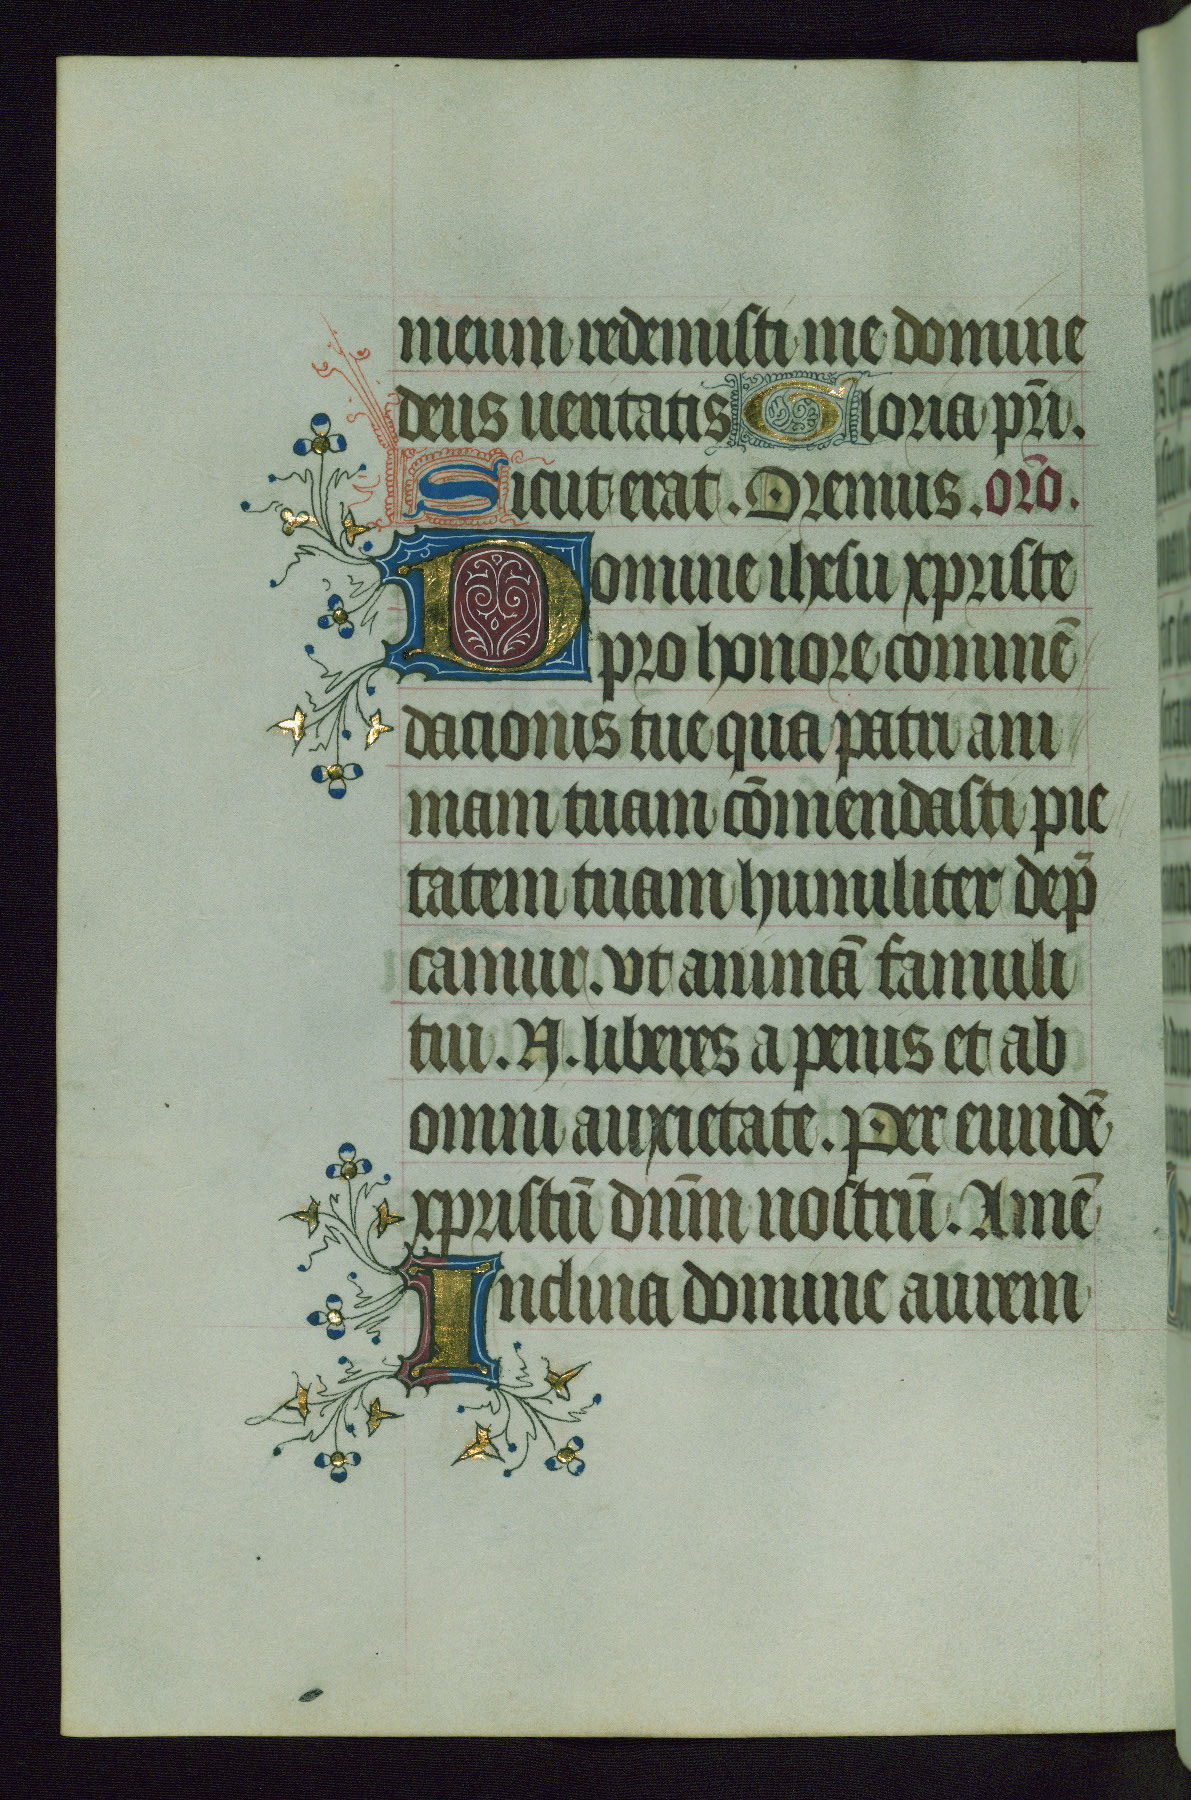 meum redemisti me domine
deus ueritatis Gloria pr̄i.
Sicut erat. Oremus. or̄o.
Domine ihesu xpriste
pro honore commē
dacionis tue qua patri ani
mam tuam cōmendasti pie
tatem tuam humiliter dep̄
camur. vt animā famuli
tui. N. liberes a penis et ab
omni anxietate. Per eundē
xpristū dn̄m nostrū. Amē
Inclina domine aurem